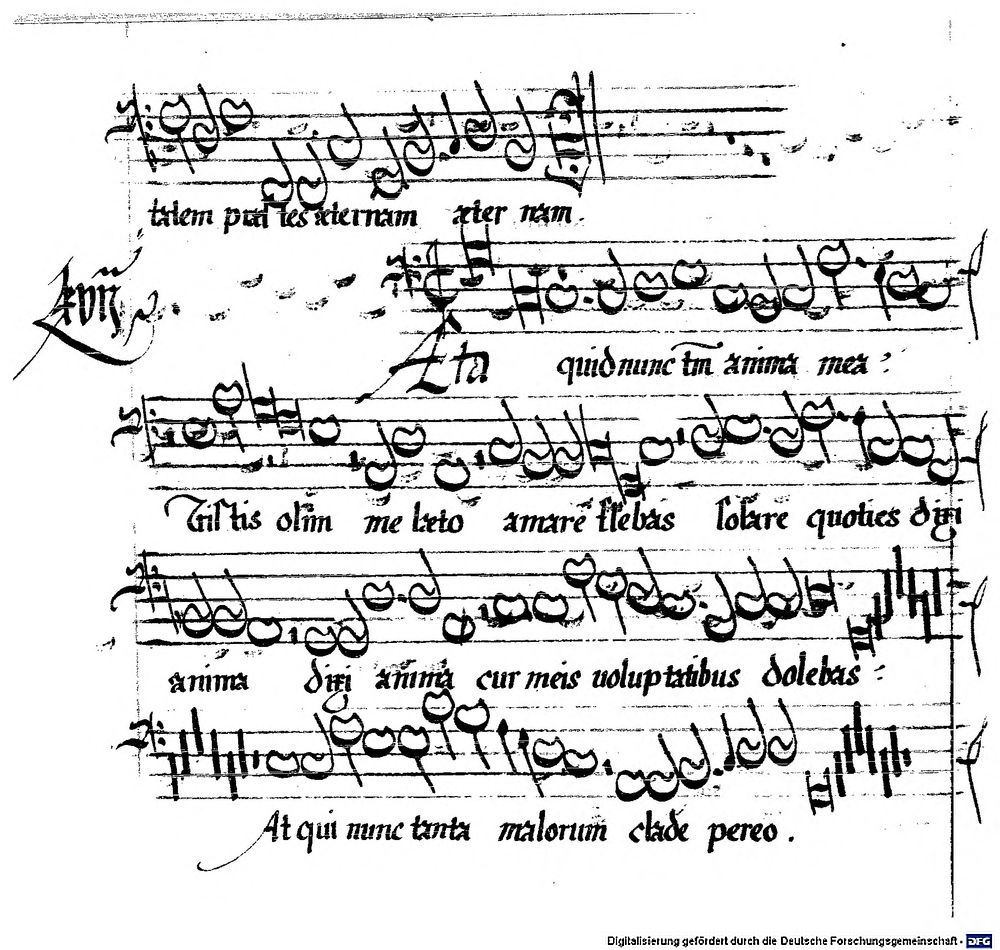 talem præstes æternam æternam.
Læta quid nunc tm̄ anima mea :
Tristis olim me læto amare flebas solare quoties dixi
anima dixi anima cur meis uoluptatibus dolebas :
At qui nunc tanta malorum clade pereo .
Digitalisierung gefördert durch die Deutsche Forschungsgemeinschaft - DFG